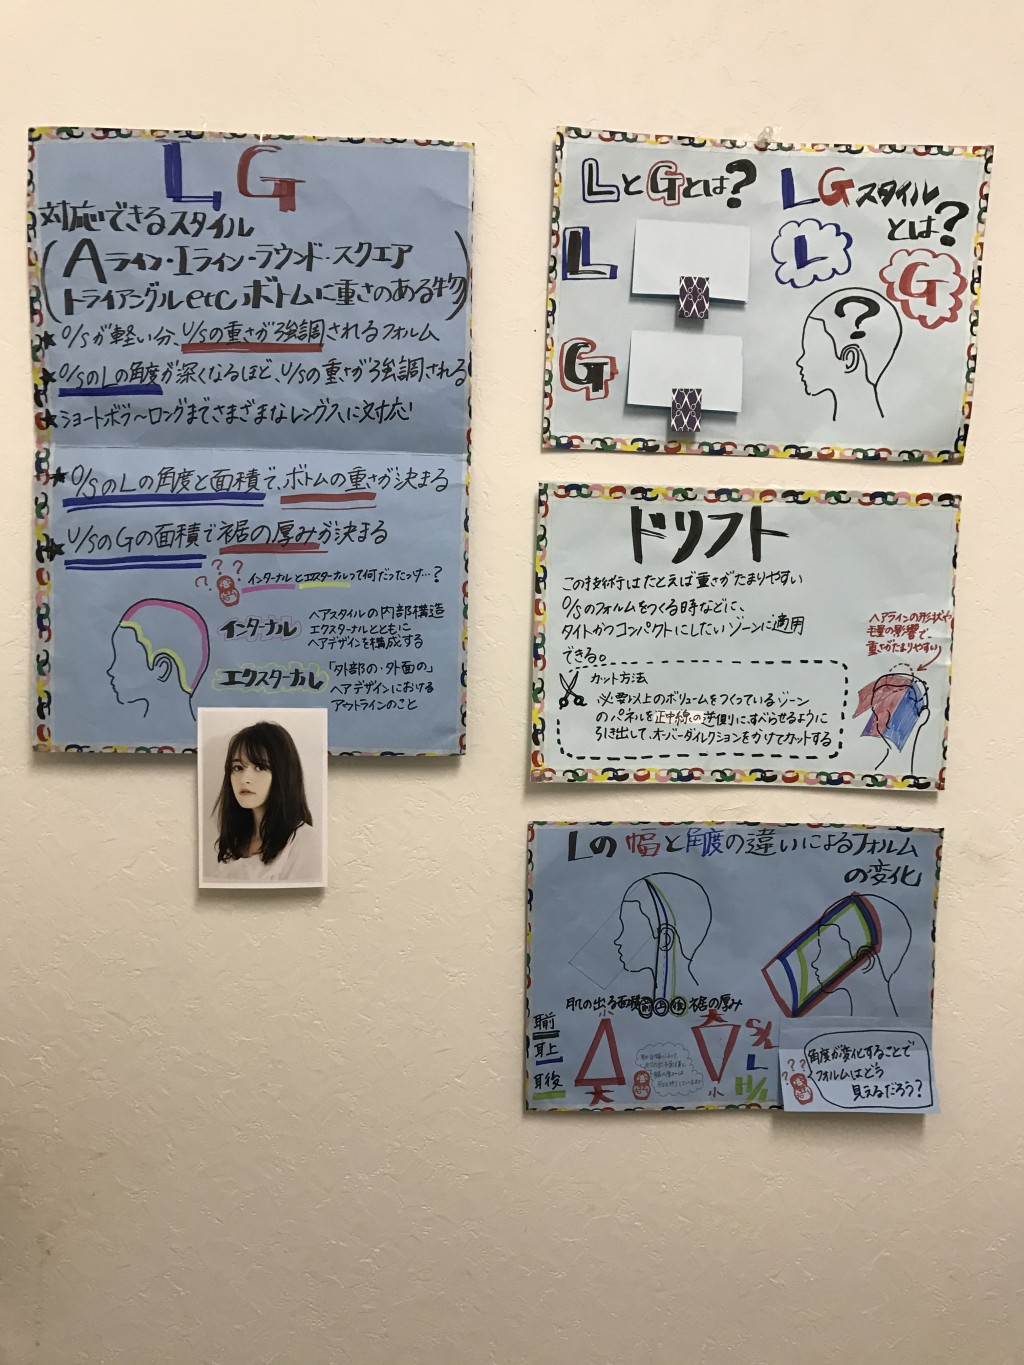 LG
対応できるスタイル
(Aライン・Iライン・ラウンド・スクエア
トライアングル etc ボトムに重さのある物)
★O/Sが軽い分、U/Sの重さが強調されるフォルム
★O/SのLの角度が深くなるほど、U/Sの重さが強調される
★ショートボブ〜ロングまでさまざまなレングスに対応
★O/SのLの角度と面積で、ボトムの重さが決まる
★U/SのGの面積で裾の厚みが決まる
???
インターナルとエクスターナルって何だったっけ…?
インターナル
ヘアスタイルの内部構造
エクスターナルとともに
ヘアデザインを構成する
エクスターナル
「外部の・外面の」
ヘアデザインにおける
アウトラインのこと
LとGとは?
L
G
LGスタイル
とは?
L
G
?
ドリフト
この技術はたとえば重さがたまりやすい
O/Sのフォルムをつくる時などに、
タイトかつコンパクトにしたいゾーンに適用
できる。
カット方法
必要以上のボリュームをつくっているゾーン
のパネルを正中線との逆側に、すべらせるように
引き出して、オーバーダイレクションをかけてカットする
ヘアラインの形状や
毛量の影響で、
重さがたまりやすい
Lの幅と角度の違いによるフォルム
の変化
肌の出る面積 前 上 後 裾の厚み
耳前
耳上
耳後
小
大
大
小
S/L
L
H/L
???
角度が変化することで
フォルムはどう
見えるだろう?